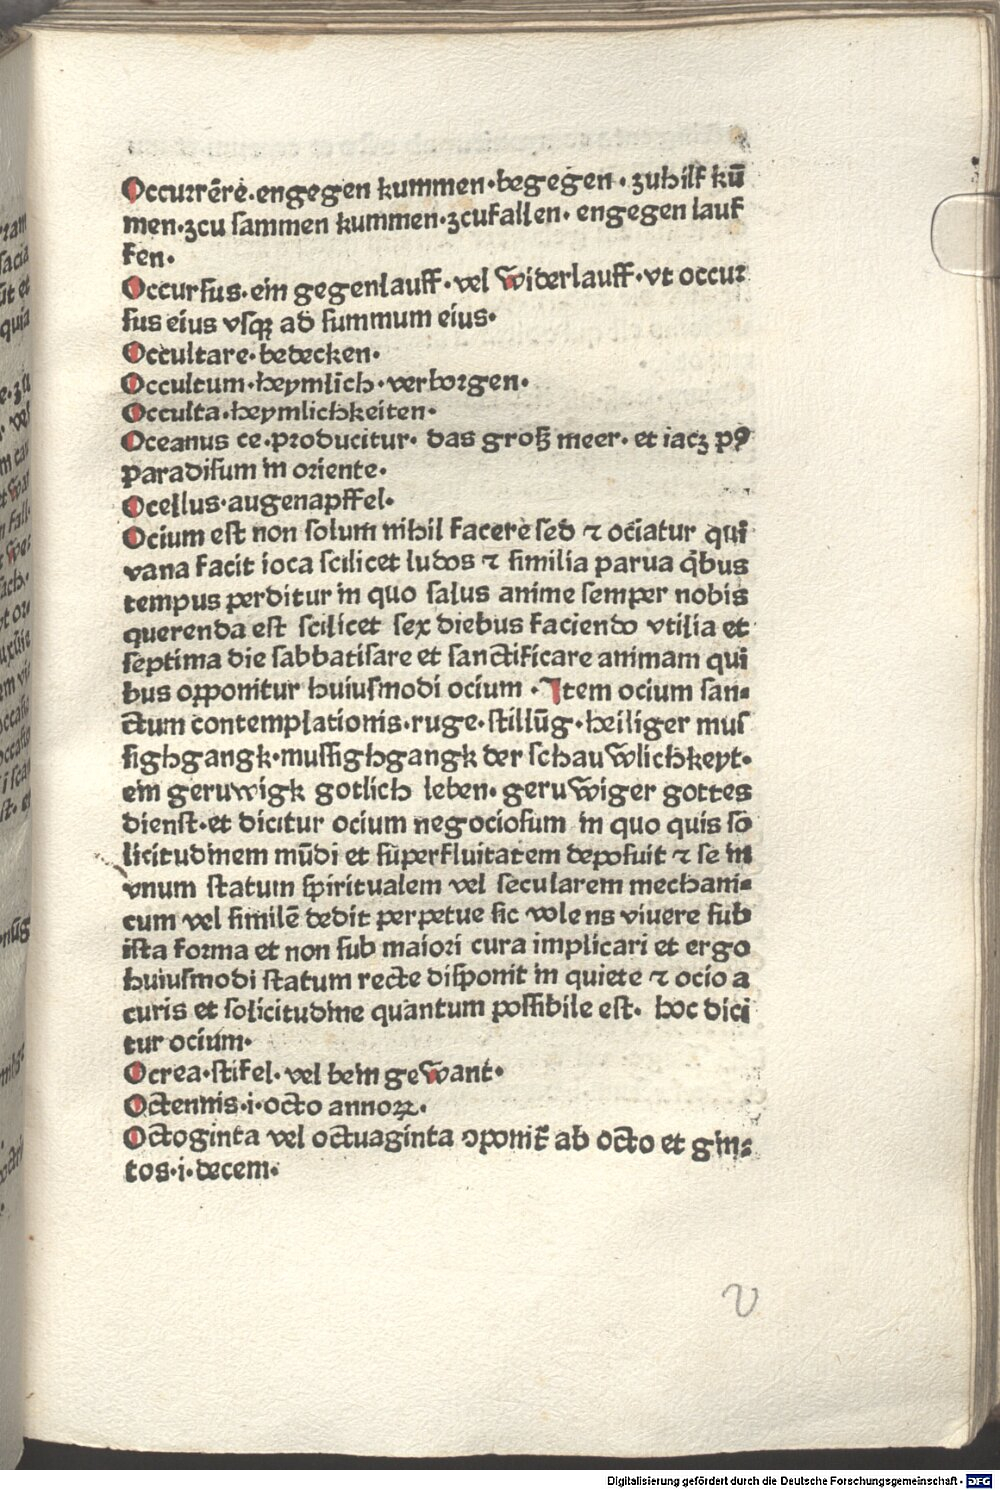 Occurrēre·engegen kummen·begegen·zuhilf kū
men·zcu sammen kummen·zcufallen·engegen lauf
fen·
Occursus·ein gegenlauff·vel widerlauff·vt occur
sus eius vsqꝫ ad summum eius·
Occultare·bedecken·
Occultum·heymlich·verborgen·
Occulta·heymlichkeiten·
Oceanus ce·producitur·das groß meer·et iacꝫ pꝰ
paradisum in oriente·
Ocellus·augenapffel·
Ocium est non solum nihil facere sed ⁊ ociatur qui
vana facit ioca scilicet ludos ⁊ similia parua q̄bus
tempus perditur in quo salus anime semper nobis
querenda est scilicet sex diebus faciendo vtilia et
septima die sabbatisare et sanctificare animam qui
bus opponitur huiusmodi ocium·Item ocium san⸗
ctum contemplationis·ruge·stillūg·heiliger mus
sighgangk·mussighgangk der schauwlichkeyt·
ein geruwigk gotlich leben·geruwiger gottes
dienst·et dicitur ocium negociosum in quo quis so
licitudinem mūdi et superfluitatem deposuit ⁊ se in
vnum statum spiritualem vel secularem mechani⸗
cum vel similē dedit perpetue sic volens viuere sub
ista forma et non sub maiori cura implicari et ergo
huiusmodi statum recte disponit in quiete ⁊ ocio a
curis et solicitudine quantum possibile est·hoc dici
tur ocium·
Ocrea·stifel·vel bein gewant·
Octennis·i·octo annoꝝ·
Octoginta vel octuaginta ꝯponit᷑ ab octo et gin⸗
tos·i·decem·
v
Digitalisierung gefördert durch die Deutsche Forschungsgemeinschaft - DFG